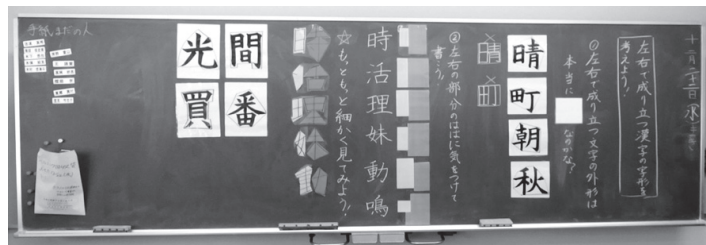 左右で成り立つ漢字の字形を
考えよう!
①左右で成り立つ文字の外形は
本当に
なのかな?
晴
町
朝
秋
晴
町
②左右の部分のはばに気をつけて
書こう。
時
活
理
妹
動
鳴
☆もっともっと細かく見てみよう!
間
番
光
買
手紙まだの人